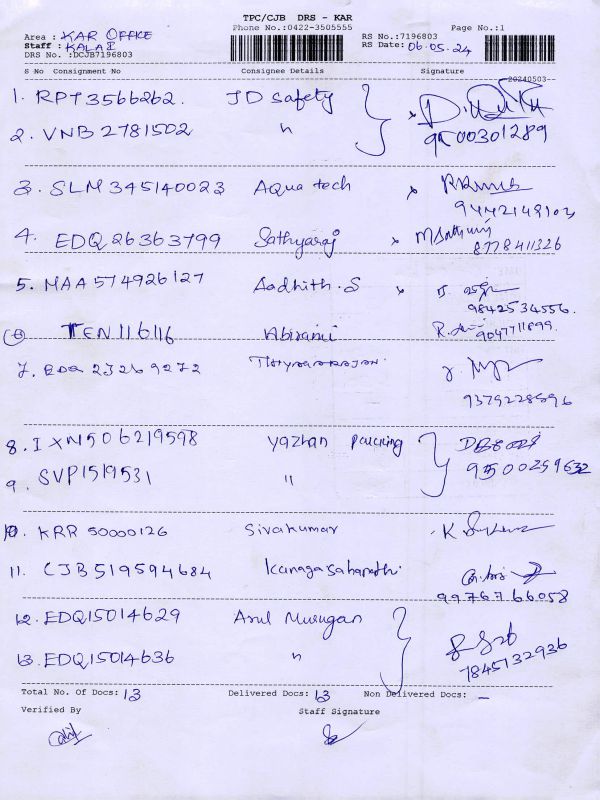 TPC/CJB DRS - KAR
Phone No.:0422-3505555
Page No.:1
Area : KAR OFFICE
RS No.:7196803
Staff : KALAI
RS Date: 06.05.24
DRS No. :DCJB7196803
S No Consignment No Consignee Details Signature
20240503
1. RPT3566262. JD Safety
2. VNB 2781502 "
9500301289
3. SLM 345140023 Aqua tech
9442149103
4. EDQ 26363799 Sathyaraj
8778411326
5. MAA 574926127 Aadhith.S
9842534556
6 TEN116116 Abirami
9047711899
7. EDQ 23269272
9379228596
8. IXN506219598 Yazhan packing
9500259632
9. SVP1519531 "
10. KRR 50000126 Sivakumar
11. CJB 519594684 Kanagasabapathi
9976766058
12. EDQ15014629 Arul Murugan
13. EDQ15014636 "
7845132936
Total No. Of Docs: 13 Delivered Docs: 13 Non Delivered Docs: -
Verified By Staff Signature